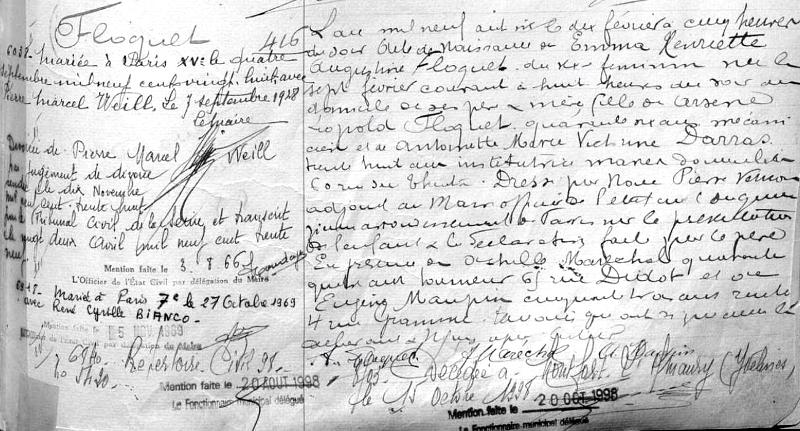 Floquet 416
6038 - mariée à Paris XVe le quatre
septembre mil neuf cent vingt huit avec
Pierre Marcel Weill, le 7 septembre 1928
Lemaire
Divorcée de Pierre Marcel Weill
par jugement de divorce
rendu le dix Novembre
mil neuf cent trente huit
par le Tribunal Civil de la Seine et transcrit
le vingt deux Avril mil neuf cent trente
neuf.
Mention faite le 3. 8. 66
L'Officier de l'État Civil par délégation du Maire
Mariée à Paris 7e le 27 Octobre 1969
avec René Cyrille BIANCO.
Mention faite le 5 NOV. 1969
de l'État Civil par délégation du Maire
Répertoire Civil 98.
Mention faite le 20 AOUT 1998
Le Fonctionnaire municipal délégué
L'an mil neuf cent six le dix février à cinq heures
du soir Acte de Naissance de Emma Henriette
Augustine Floquet du sexe féminin née le
sept février courant à huit heures du soir au
domicile de ses père & mère fille de Arsène
Léopold Floquet quarante ans mécani
cien et de Antoinette Marie Victorine Darras
trente huit ans institutrice mariés domiciliés
rue du Théâtre. Dressé par Nous Pierre
adjoint au Maire officier de l'état civil du quin
zième arrondissement de Paris sur la présentation
de l'enfant & la déclaration faite par le père
En présence de Achille Maréchal quarante
quatre ans tourneur 65 rue Didot et de
Eugène Maupin cinquante trois ans
4 rue témoins qui ont signé avec le
déclarant & Nous après lecture
A. Floquet Maréchal Maupin
Décédée à Montfort l'Amaury (Yvelines)
le 15 Octobre 1998
Mention faite le 20 OCT 1998
Le Fonctionnaire municipal délégué